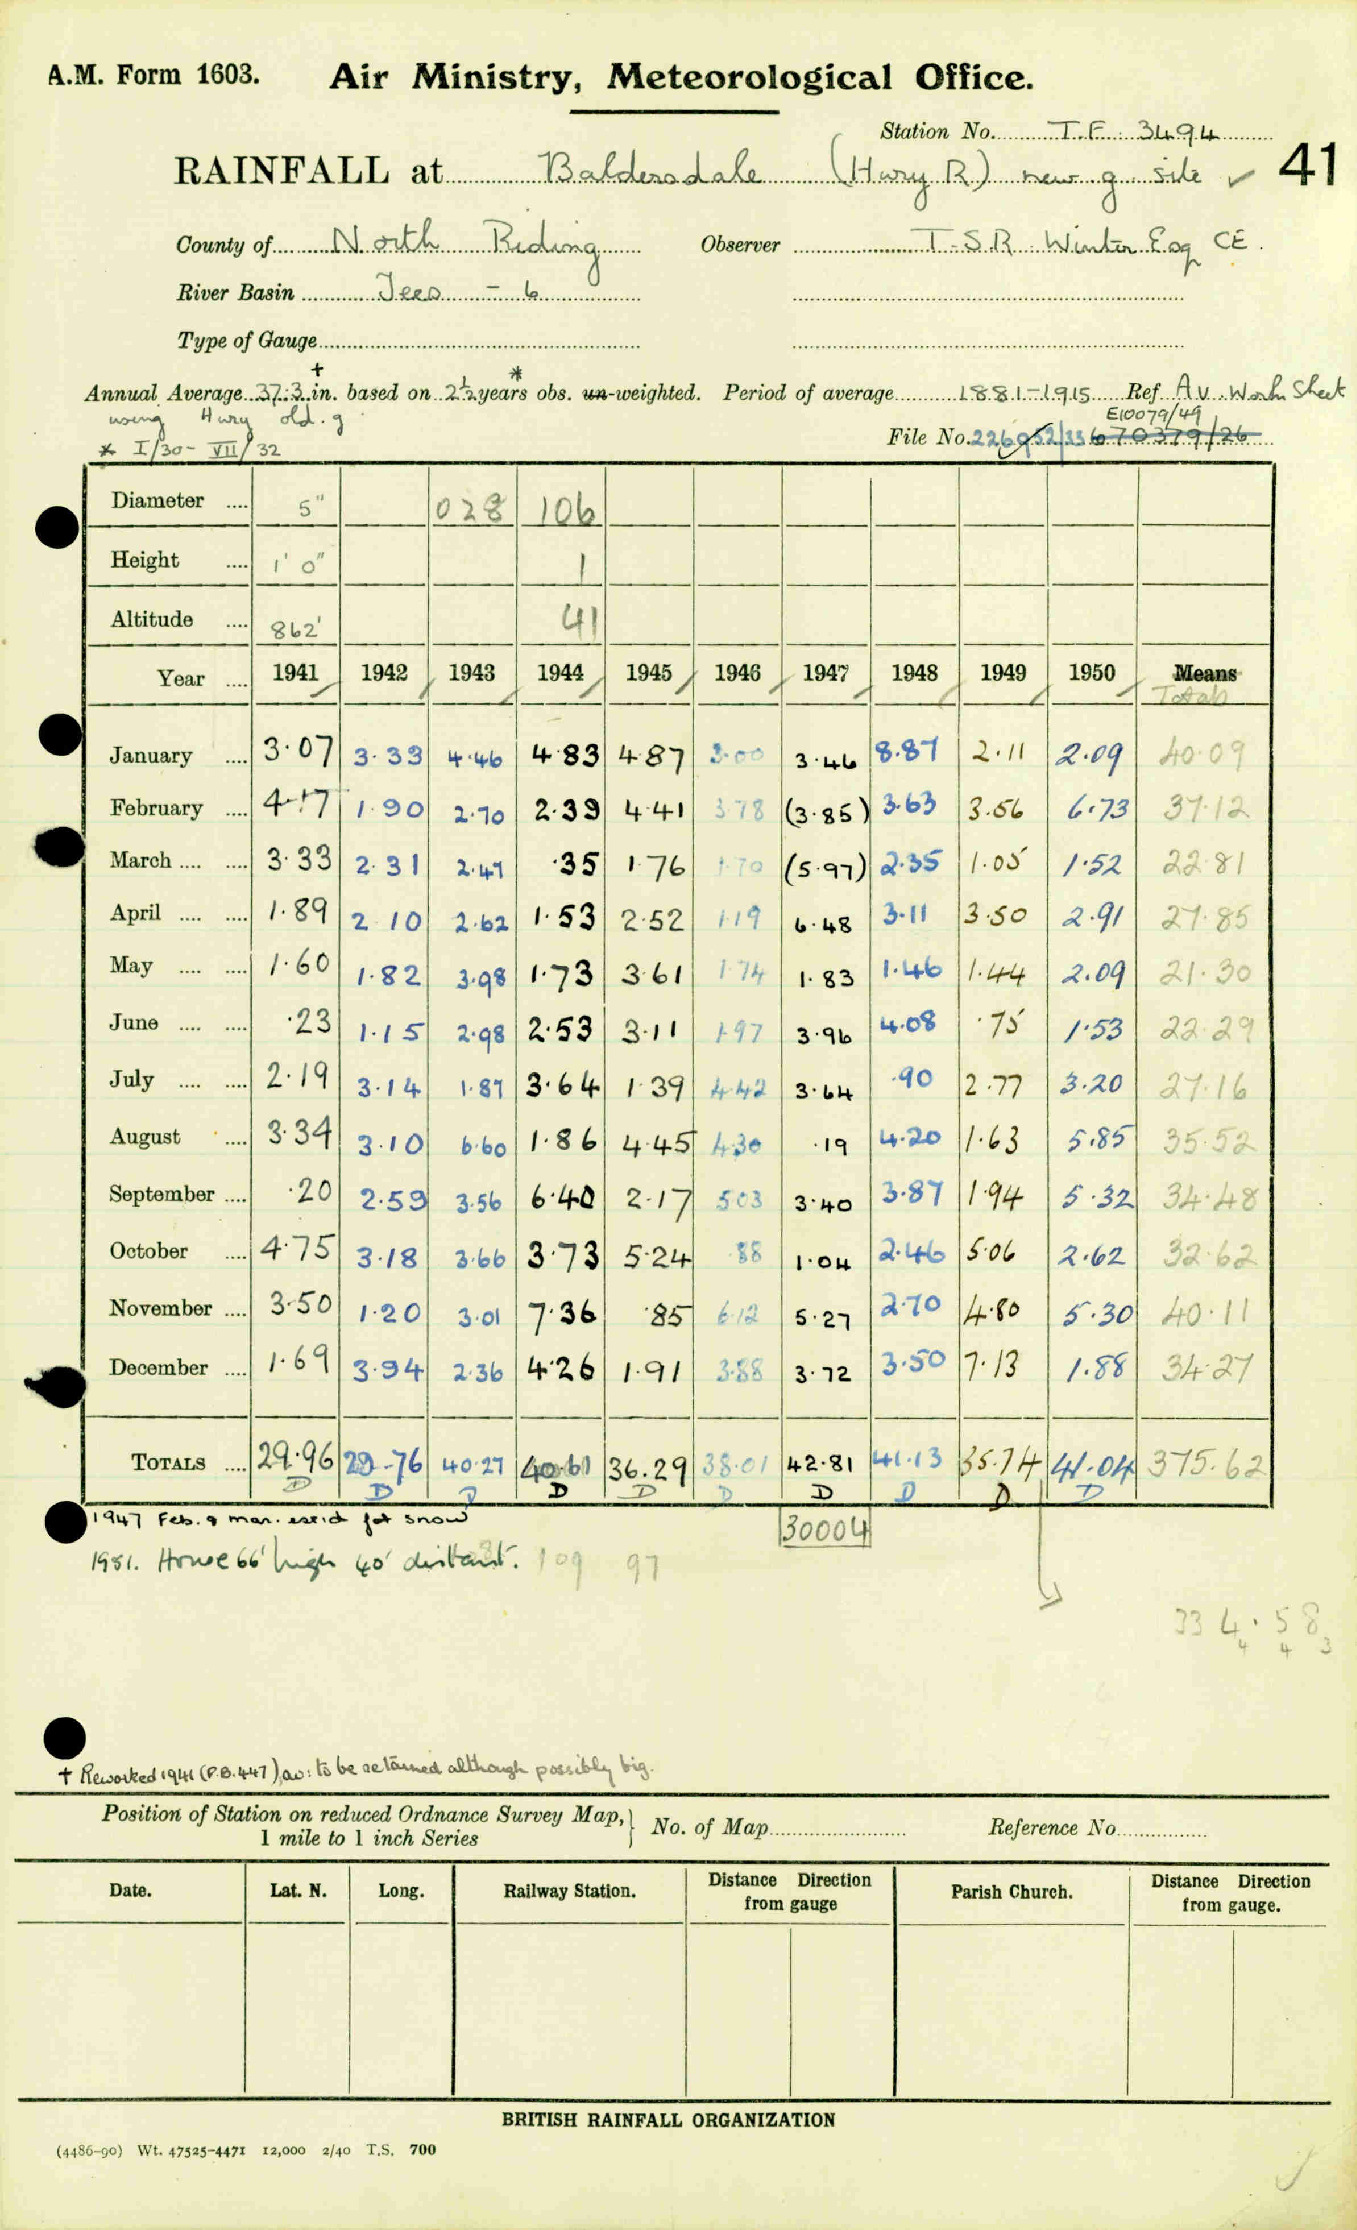 A.M. Form 1603. Air Ministry, Meteorological Office.
Station No. T.F. 3494
41
RAINFALL at Baldersdale (Hury R) new g. site ✓
County of North Riding Observer T.S.R. Winter Esq CE.
River Basin Tees - 6
Type of Gauge
Annual Average 37.3 † in. based on 2½ years * obs. un-weighted. Period of average 1881-1915 Ref Av. Work Sheet
using Hury old. g
E10079/49
File No. 226952/33 670379/26
* I/30 - VII/32
Diameter .... 5" 028 106
Height .... 1' 0" 1
Altitude .... 862' 41
Year .... 1941 1942 1943 1944 1945 1946 1947 1948 1949 1950 Means
Totals
January .... 3.07 3.33 4.46 4.83 4.87 3.00 3.46 8.87 2.11 2.09 40.09
February .... 4.17 1.90 2.70 2.39 4.41 3.78 (3.85) 3.63 3.56 6.73 37.12
March .... .... 3.33 2.31 2.47 .35 1.76 1.70 (5.97) 2.35 1.05 1.52 22.81
April .... .... 1.89 2.10 2.62 1.53 2.52 1.19 6.48 3.11 3.50 2.91 27.85
May .... .... 1.60 1.82 3.98 1.73 3.61 1.74 1.83 1.46 1.44 2.09 21.30
June .... .... .23 1.15 2.98 2.53 3.11 1.97 3.96 4.08 .75 1.53 22.29
July .... .... 2.19 3.14 1.87 3.64 1.39 4.42 3.64 .90 2.77 3.20 27.16
August .... 3.34 3.10 6.60 1.86 4.45 4.30 .19 4.20 1.63 5.85 35.52
September .... .20 2.59 3.56 6.40 2.17 5.03 3.40 3.87 1.94 5.32 34.48
October .... 4.75 3.18 3.66 3.73 5.24 .88 1.04 2.46 5.06 2.62 32.62
November .... 3.50 1.20 3.01 7.36 .85 6.12 5.27 2.70 4.80 5.30 40.11
December .... 1.69 3.94 2.36 4.26 1.91 3.88 3.72 3.50 7.13 1.88 34.27
TOTALS .... 29.96 29.76 40.27 40.61 36.29 38.01 42.81 41.13 35.74 41.04 375.62
D D D D D D D D D D
1947 Feb. & mar. estd for snow 30004
1951. House 66' high 40' distant. 109 97
334.58
4 4 3
† Reworked 1941 (P.B.447), av: to be retained although possibly big.
Position of Station on reduced Ordnance Survey Map, 1 mile to 1 inch Series } No. of Map Reference No.
Date. Lat. N. Long. Railway Station. Distance Direction from gauge Parish Church. Distance Direction from gauge.
BRITISH RAINFALL ORGANIZATION
(4486-90) Wt. 47525-4471 12,000 2/40 T.S. 700